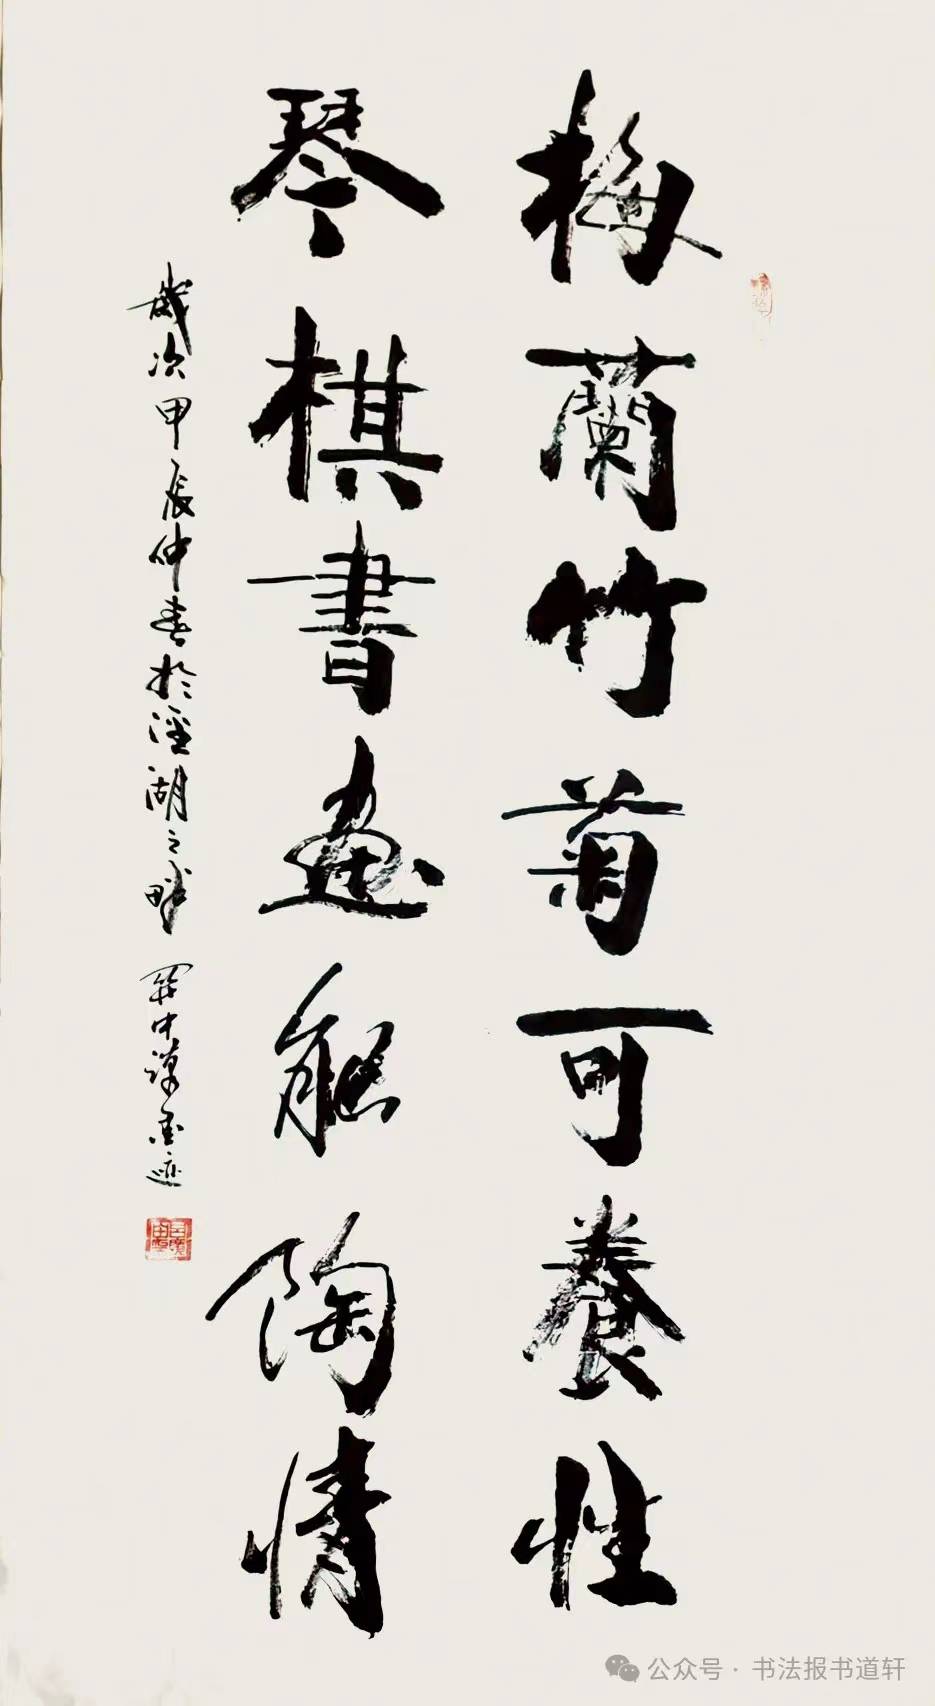 梅蘭竹菊可養性
琴棋書畫能陶情
歲次甲辰仲春於瑤湖之畔
中漢墨迹
公众号·书法报书道轩